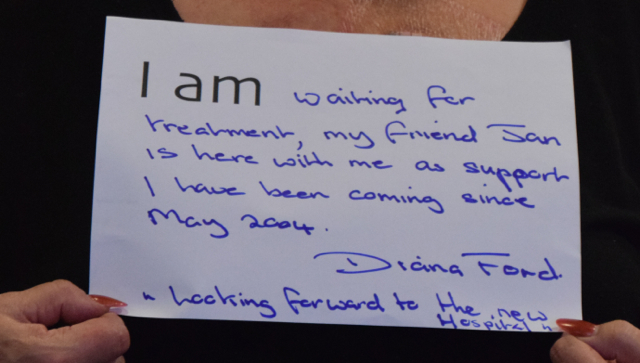 I am waiting for
treatment, my friend Jan
is here with me as support
I have been coming since
May 2004.
Diana Ford.
" Looking forward to the new
Hospital "